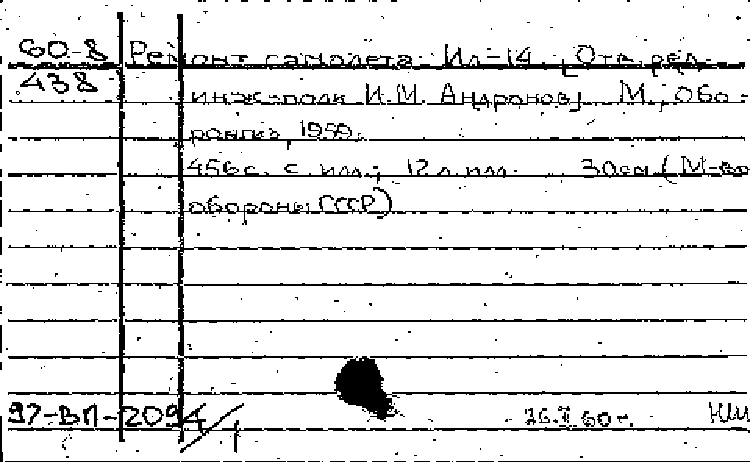 60-8 Ремонт самолета Ил-14. [Отв. ред.
438
инж.-полк. И.М. Андронов]. М., Обо-
ронгиз, 1959.
456 с. с илл.; 12 л. илл. 30 см (М-во
обороны СССР)
97-ВП-2094/1 60 г.